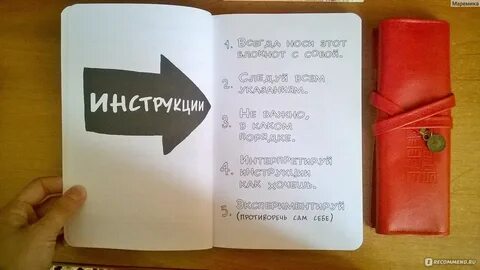 Маремика
ИНСТРУКЦИИ
1. Всегда носи этот
блокнот с собой.
2. Следуй всем
указаниям.
3. Не важно,
в каком
порядке.
4. Интерпретируй
инструкции
как хочешь.
5. Экспериментируй
(противоречь сам себе)
IRECOMMEND.RU